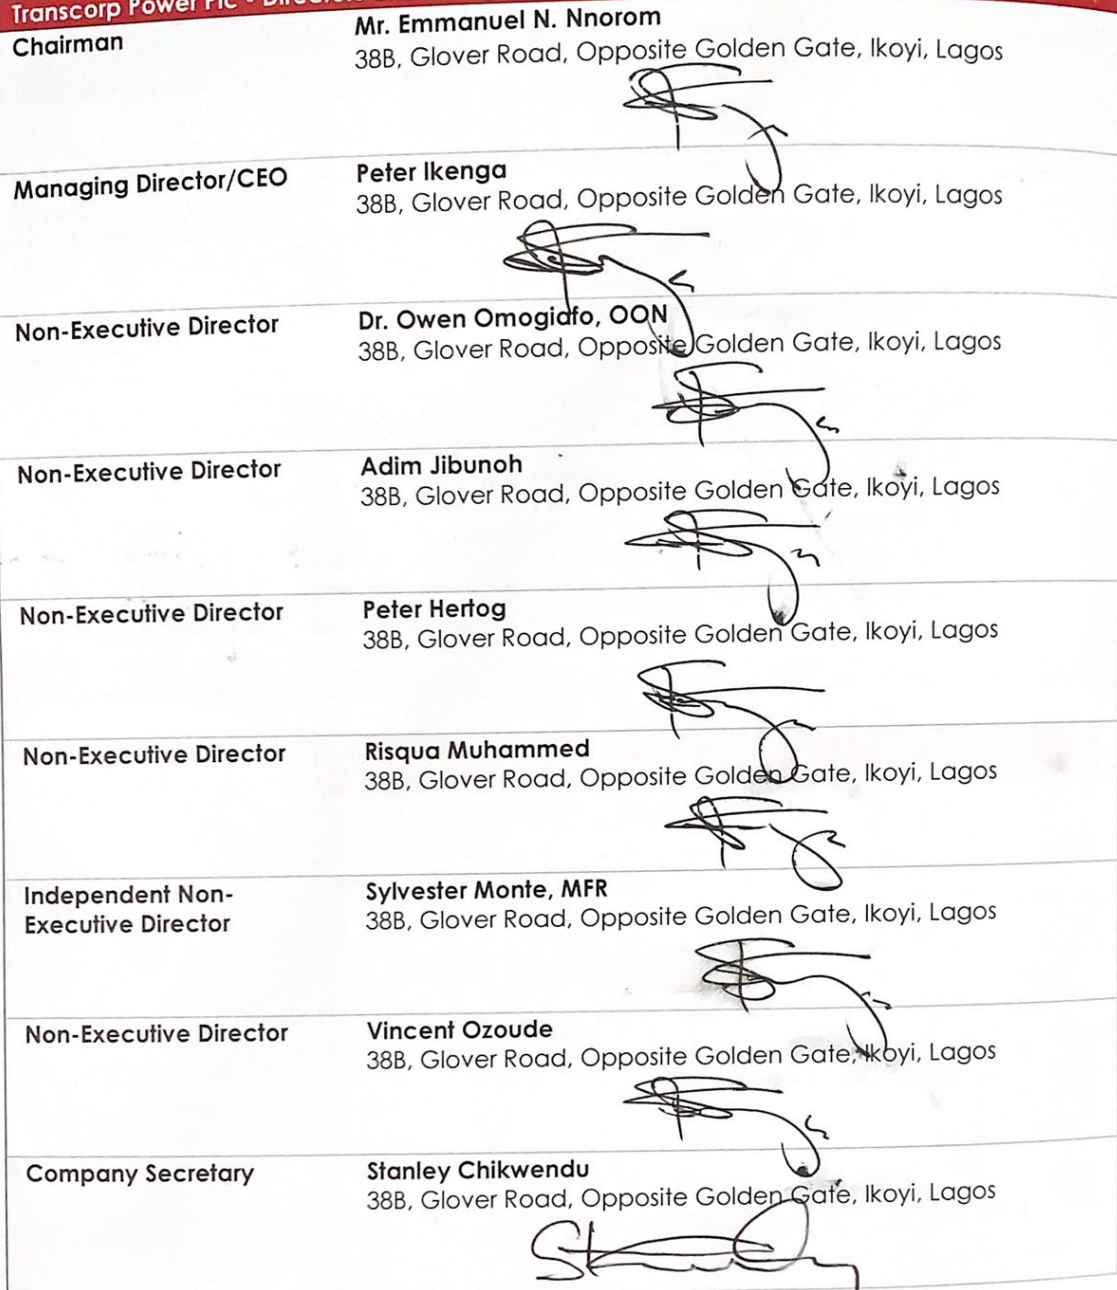 Transcorp Power Plc - Directors
Chairman
Mr. Emmanuel N. Nnorom
38B, Glover Road, Opposite Golden Gate, Ikoyi, Lagos
Managing Director/CEO
Peter Ikenga
38B, Glover Road, Opposite Golden Gate, Ikoyi, Lagos
Non-Executive Director
Dr. Owen Omogiafo, OON
38B, Glover Road, Opposite Golden Gate, Ikoyi, Lagos
Non-Executive Director
Adim Jibunoh
38B, Glover Road, Opposite Golden Gate, Ikoyi, Lagos
Non-Executive Director
Peter Hertog
38B, Glover Road, Opposite Golden Gate, Ikoyi, Lagos
Non-Executive Director
Risqua Muhammed
38B, Glover Road, Opposite Golden Gate, Ikoyi, Lagos
Independent Non-
Executive Director
Sylvester Monte, MFR
38B, Glover Road, Opposite Golden Gate, Ikoyi, Lagos
Non-Executive Director
Vincent Ozoude
38B, Glover Road, Opposite Golden Gate, Ikoyi, Lagos
Company Secretary
Stanley Chikwendu
38B, Glover Road, Opposite Golden Gate, Ikoyi, Lagos